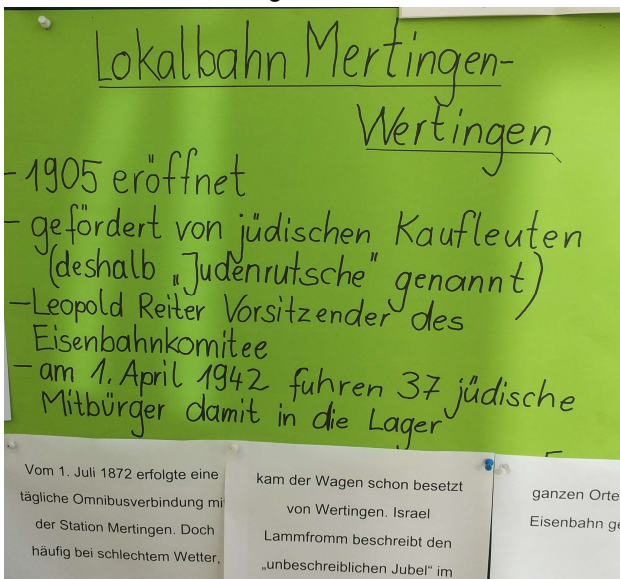 Lokalbahn Mertingen-
Wertingen
- 1905 eröffnet
- gefördert von jüdischen Kaufleuten
(deshalb „Judenrutsche" genannt)
- Leopold Reiter Vorsitzender des
Eisenbahnkomitee
- am 1. April 1942 fuhren 37 jüdische
Mitbürger damit in die Lager
Vom 1. Juli 1872 erfolgte eine
tägliche Omnibusverbindung mi
der Station Mertingen. Doch
häufig bei schlechtem Wetter,
kam der Wagen schon besetzt
von Wertingen. Israel
Lammfromm beschreibt den
„unbeschreiblichen Jubel" im
ganzen Orte
Eisenbahn ge